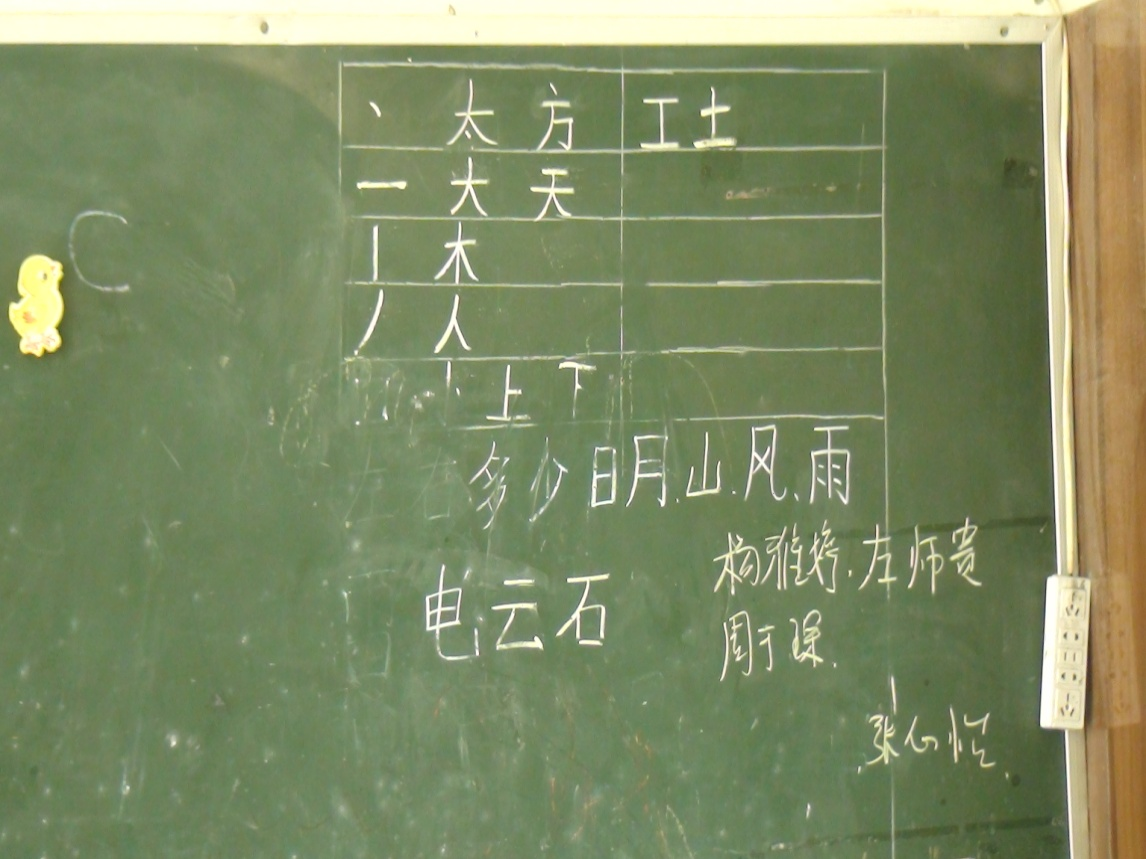 C
丶 太 方 工 土
一 大 天
丨 木
丿 人
上 下
多少日月.山.风、雨
电云石
杨雅婷.左师贵
周于琛.
张心怡.